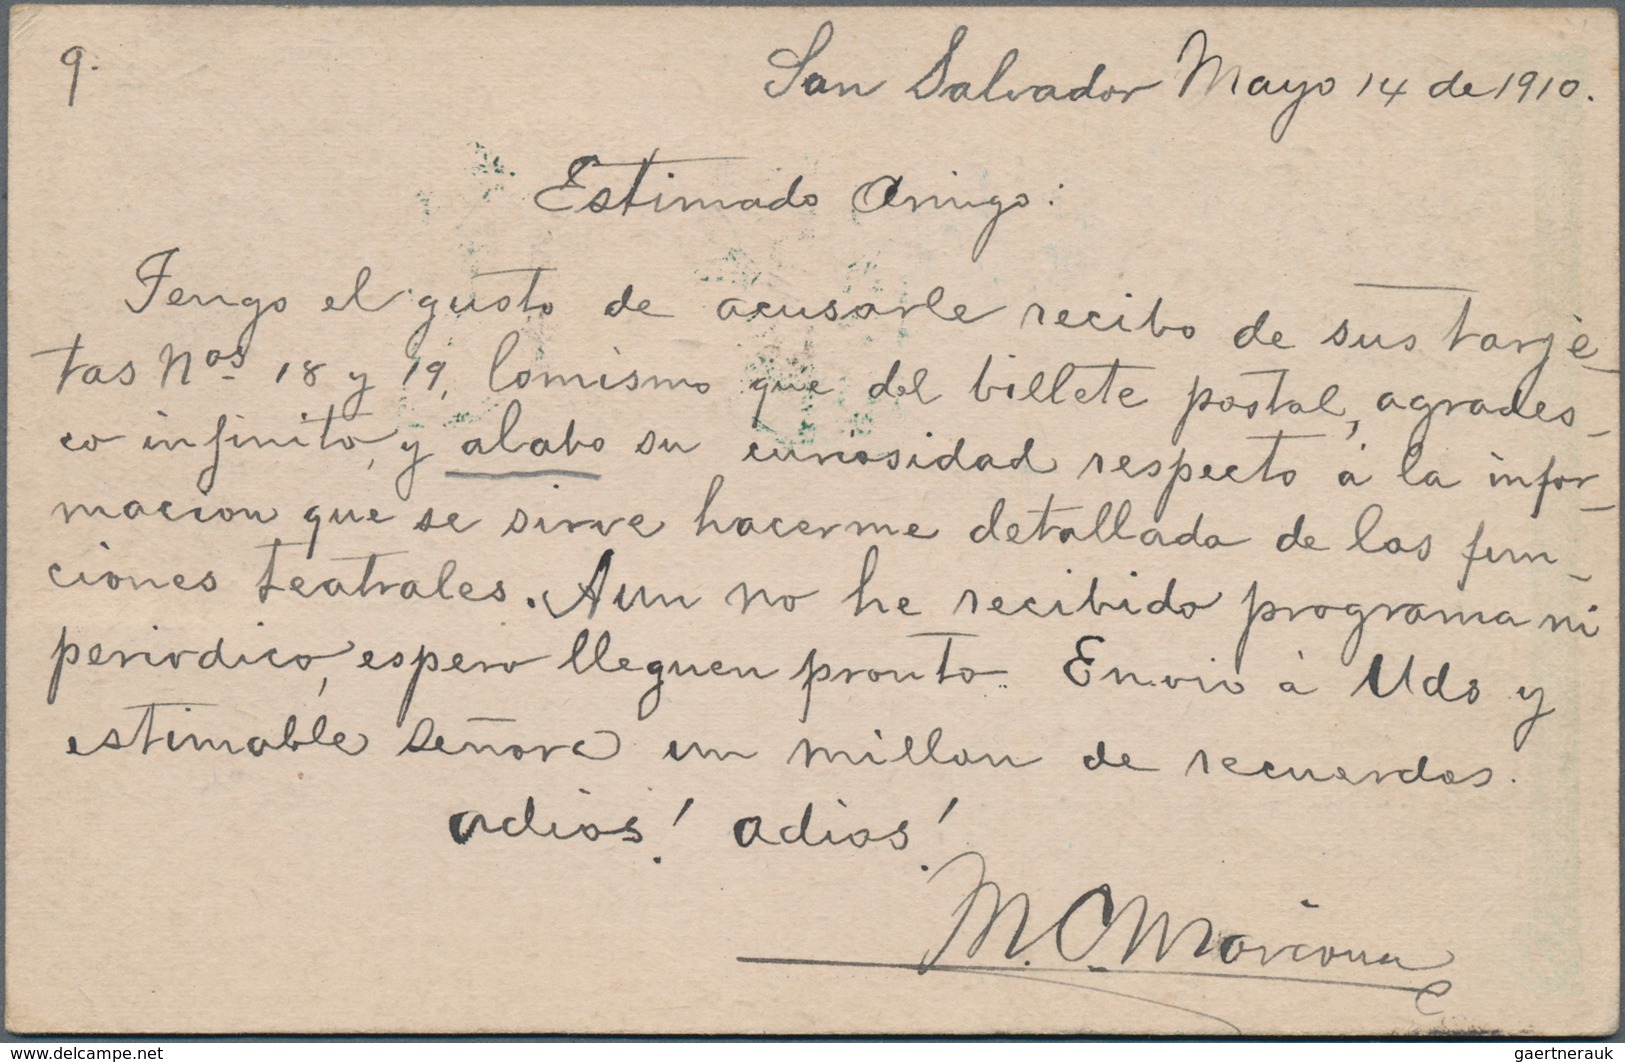 9.
San Salvador Mayo 14 de 1910.
Estimado Amigo:
Tengo el gusto de acusarle recibo de sus tarje-
tas Nos. 18 y 19, lo mismo que del billete postal, agrades-
co infinito, y alabo su curiosidad respecto á la infor-
macion que se sirve hacerme detallada de las fun-
ciones teatrales. Aun no he recibido programa ni
periodico, espero lleguen pronto. Envio á Uds y
estimable señora un millon de recuerdos.
adios! adios!
M. C. Marcona
www.delcampe.net
gaertnerauk